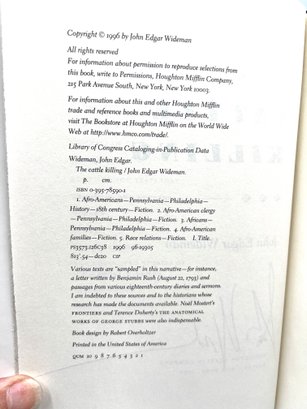 Copyright © 1996 by John Edgar Wideman
All rights reserved
For information about permission to reproduce selections from
this book, write to Permissions, Houghton Mifflin Company,
215 Park Avenue South, New York, New York 10003.
For information about this and other Houghton Mifflin
trade and reference books and multimedia products,
visit The Bookstore at Houghton Mifflin on the World Wide
Web at http://www.hmco.com/trade/.
Library of Congress Cataloging-in-Publication Data
Wideman, John Edgar.
The cattle killing / John Edgar Wideman.
p. cm.
ISBN 0-395-78590-1
1. Afro-Americans—Pennsylvania—Philadelphia—
History—18th century—Fiction. 2. Afro-American clergy
—Pennsylvania—Philadelphia—Fiction. 3. Africans—
Pennsylvania—Philadelphia—Fiction. 4. Afro-American
families—Fiction. 5. Race relations—Fiction. I. Title.
PS3573.I26C38 1996 96-19915
813'.54—dc20 CIP
Various texts are "sampled" in this narrative—for instance,
a letter written by Benjamin Rush (August 22, 1793) and
passages from various eighteenth-century diaries and sermons.
I am indebted to these sources and to the historians whose
research has made the documents available. Noël Mostert's
FRONTIERS and Terence Doherty's THE ANATOMICAL
WORKS OF GEORGE STUBBS were also indispensable.
Book design by Robert Overholtzer
Printed in the United States of America
QUM 10 9 8 7 6 5 4 3 2 1